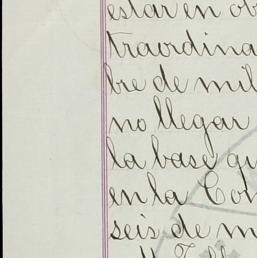 estar en ob
traordina
bre de mil
no llegar
la base qu
en la Con
seis de m